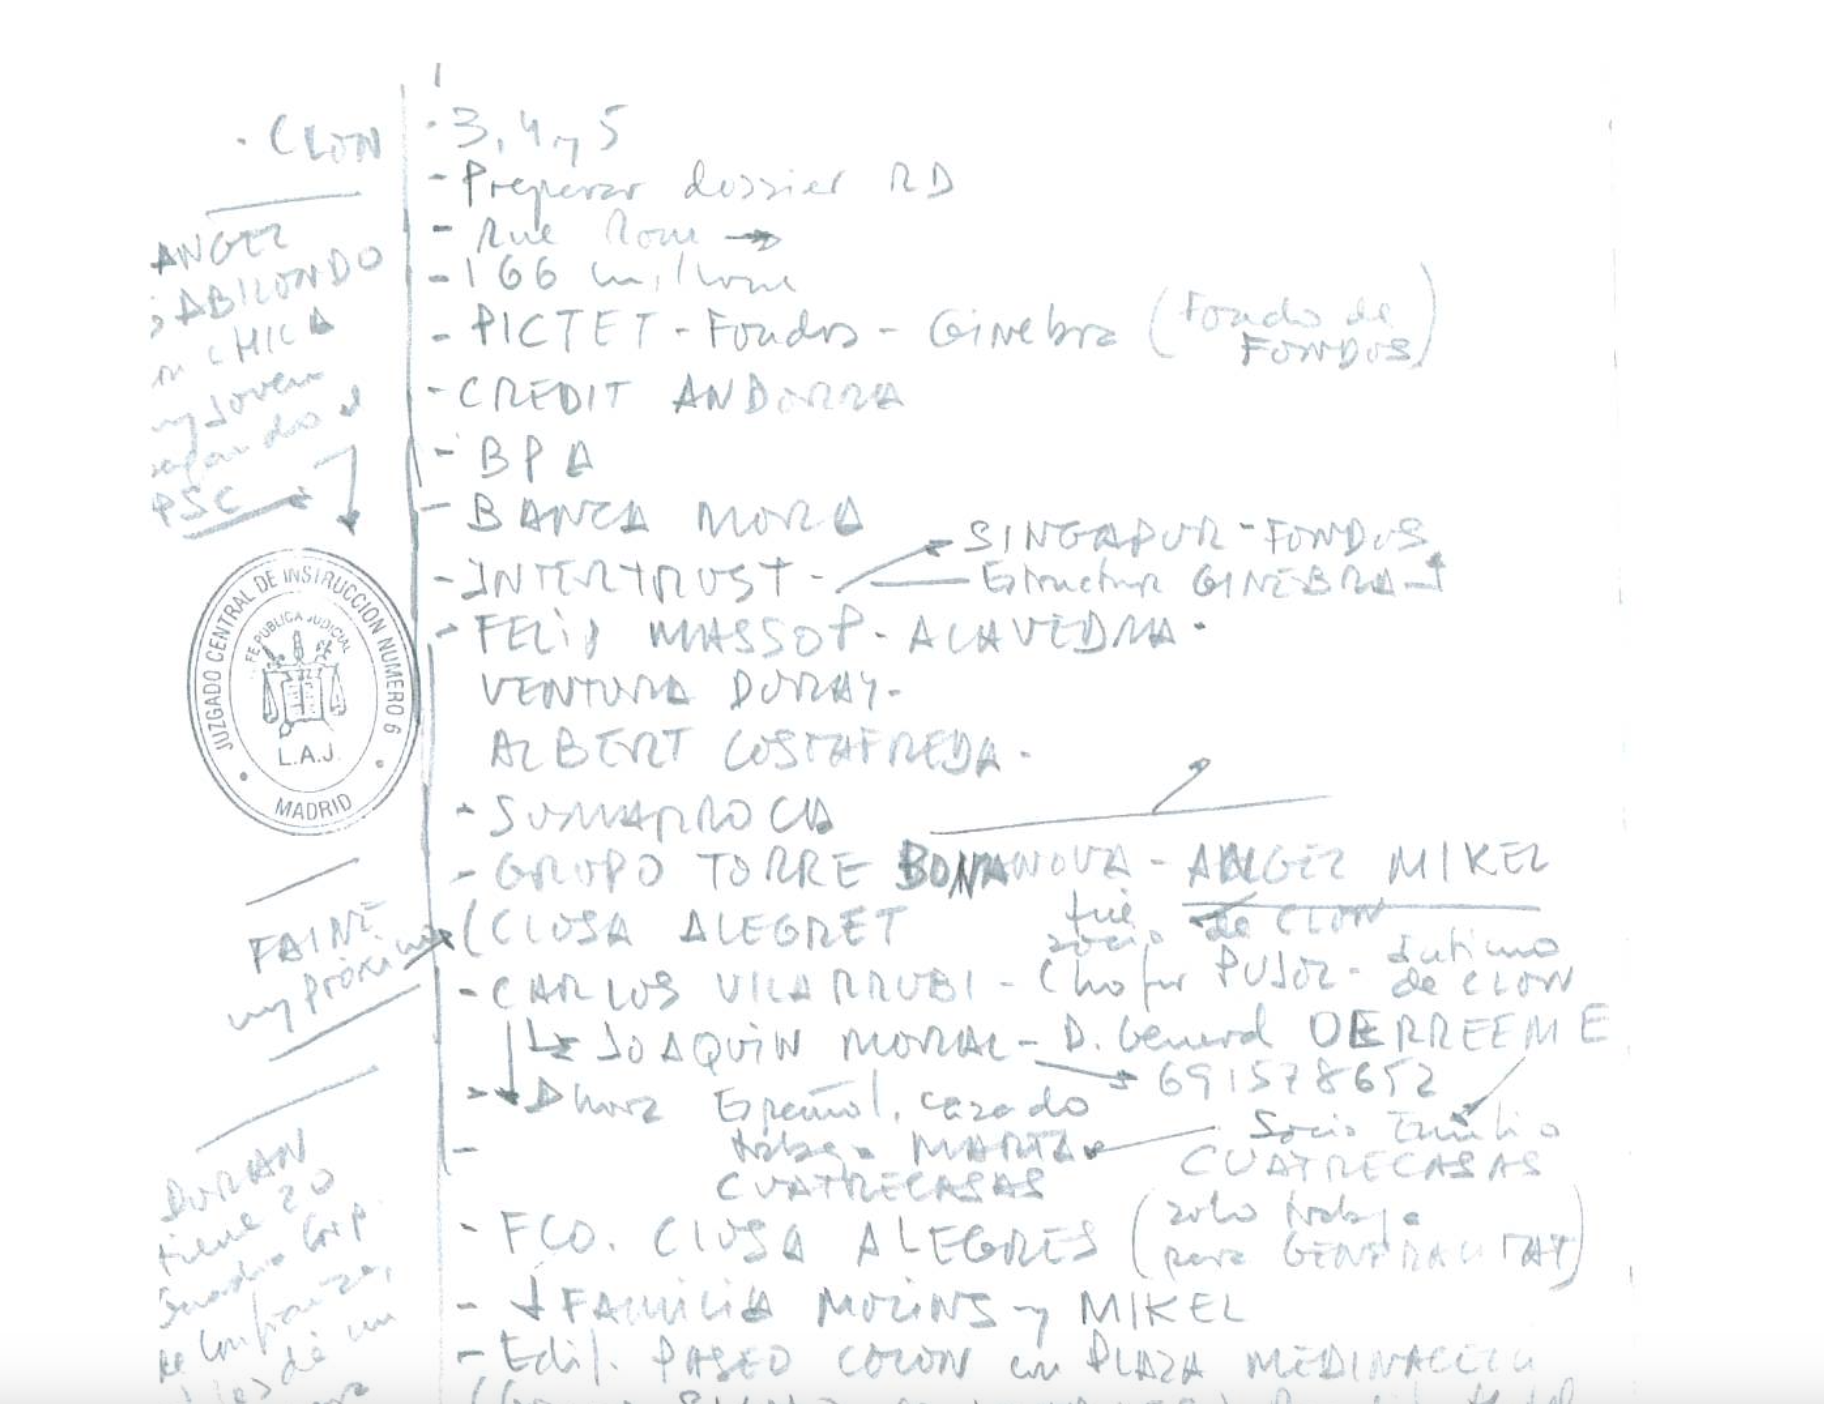 · CLON
· 3, 4 y 5
- Preparar dossier RD
- Rue Rom →
- 166 millone
- PICTET - Fondos - Ginebra (Fondo de
FONDOS)
- CREDIT ANDORRA
- BPA
- BANCA MORA
- INTERTRUST -
SINGAPUR - FONDOS
Estructur GINEBRA
- FELIP MASSOT - ALAVEDRA -
VENTURA DURAY -
ALBERT COSTAFREDA -
- SUMARROCA
- GRUPO TORRE BONANOVA - ANGEL MIKEL
fue socio de CLON
(CLOSA ALEGRET
- CARLOS VILARRUBI - Chofer PUJOL - Intimo
de CLON
JOAQUIN MORAL - D. General DERREEME
→ 691578652
Ahora Español, casado
trabaja MARTA
CUATRECASAS
Socio Emilio
CUATRECASAS
- FCO. CLOSA ALEGRES (solo trabaja
para GENERALITAT)
- FAMILIA MOLINS y MIKEL
- Edif. PASEO COLON en PLAZA MEDINACELI
ANGEL
GABILONDO
CHICA
muy joven
PSC
JUZGADO CENTRAL DE INSTRUCCION NUMERO 6
FE PUBLICA JUDICIAL
L.A.J.
MADRID
FAINE
muy próximo
DURAN
tiene 20
de confianza,